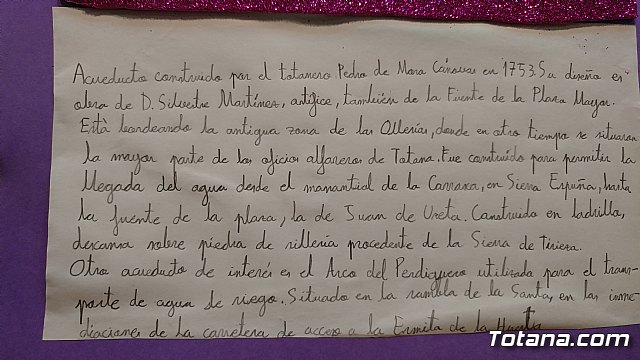 Acueducto construido por el totanero Pedro de Mora Cánovas en 1753. Su diseño es
obra de D. Silvestre Martínez, artífice, también de la Fuente de la Plaza Mayor.
Está bordeando la antigua zona de las Ollerías, donde en otro tiempo se situaron
la mayor parte de los oficios alfareros de Totana. Fue construido para permitir la
llegada del agua desde el manantial de la Carrasca, en Sierra Espuña, hasta
la fuente de la plaza, la de Juan de Uzeta. Construido en ladrillo,
descansa sobre piedra de sillería procedente de la Sierra de Tirieza.
Otro acueducto de interés es el Arco del Perdiguero utilizado para el trans-
porte de agua de riego. Situado en la rambla de la Santa, en las inme-
diaciones de la carretera de acceso a la Ermita de la Huerta
Totana.com